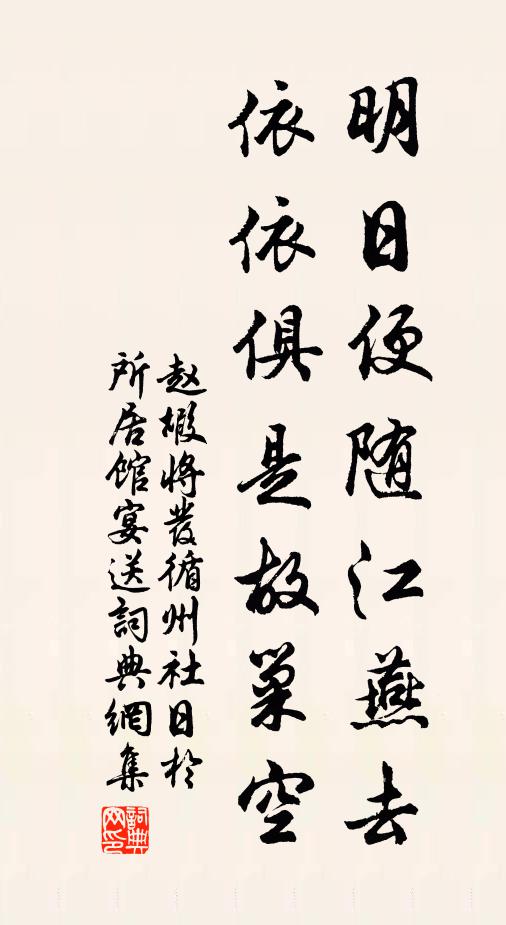 明日便随江燕去
依依俱是故巢空
赵嘏将发循州社日於
所居馆宴送詞典網集
詞典网印